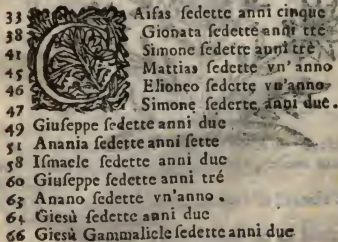 33 CAifas ſedette anni cinque
38 Gionata ſedette anni tré
41 Simone ſedette anni trè
45 Mattias ſedette vn'anno
46 Elioneo ſedette vn'anno
47 Simone ſedette anni due.
49 Giuſeppe ſedette anni due
51 Anania ſedette anni ſette
58 Iſmaele ſedette anni due
60 Giuſeppe ſedette anni tré
63 Anano ſedette vn'anno.
64 Giesù ſedette anni due
66 Giesù Gammaliele ſedette anni due